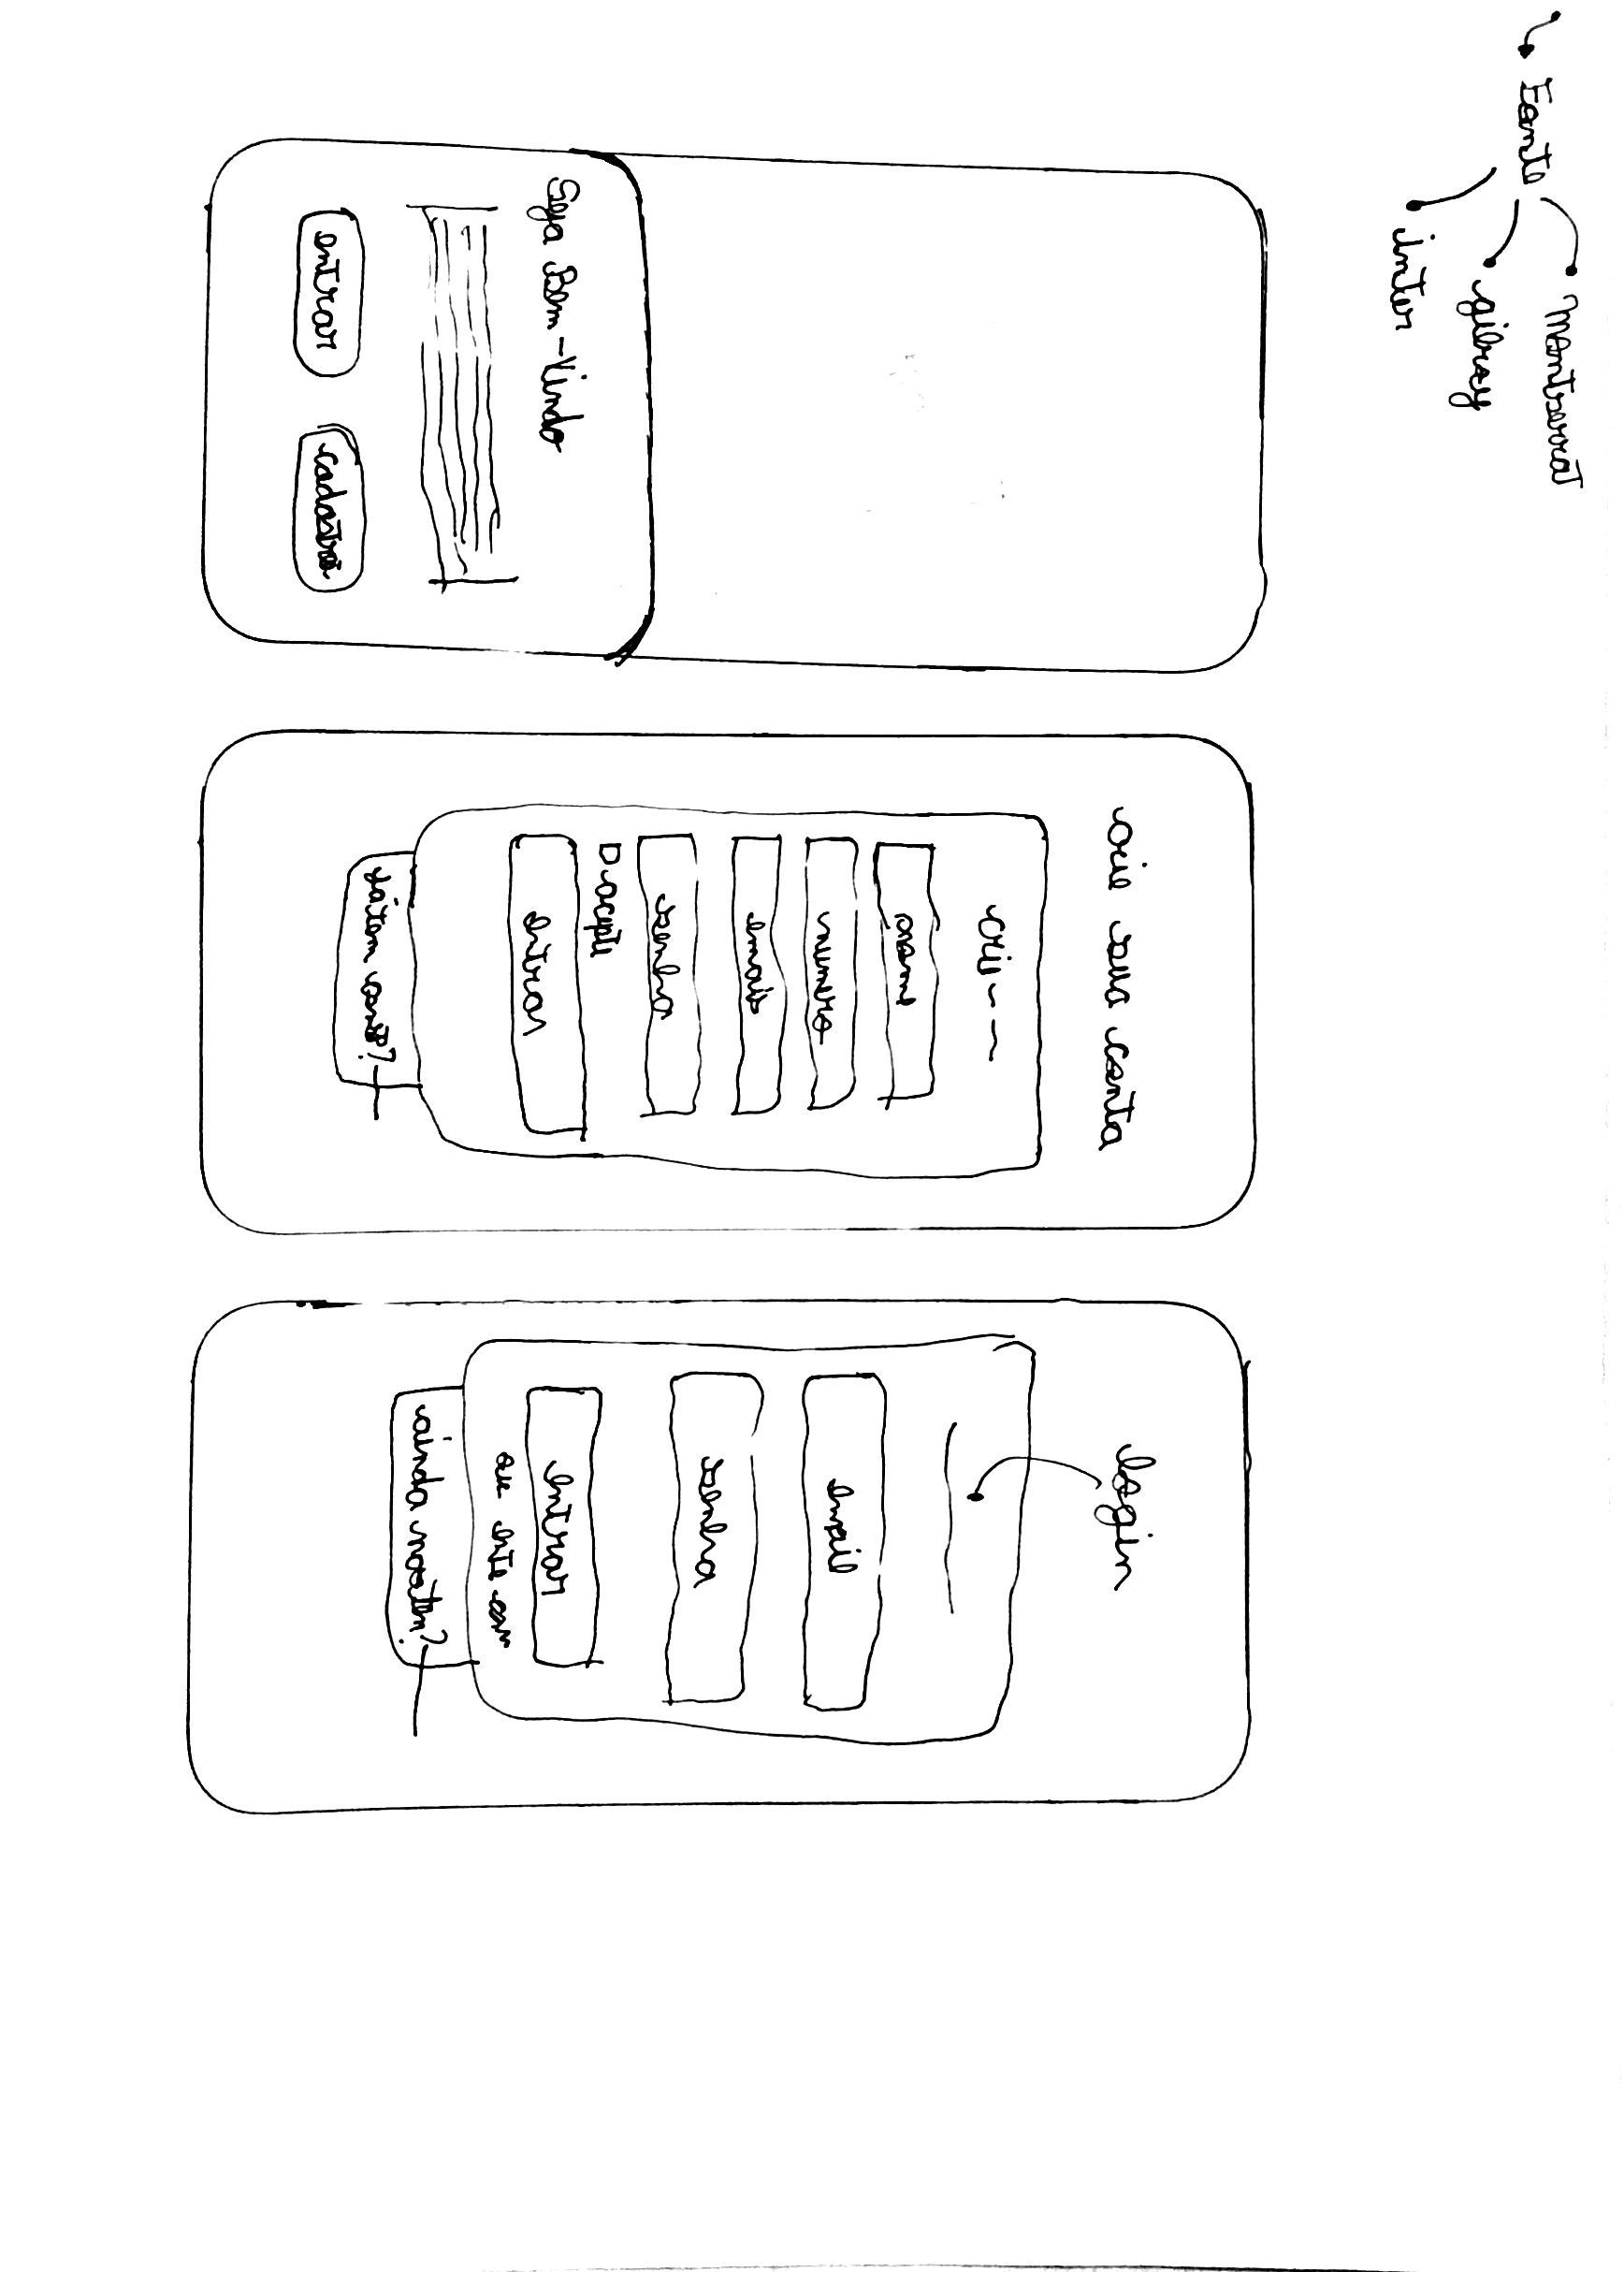 Fonte
Montserrat
gilroy
inter
Seja Bem-Vindo
entrar
cadastro
crie sua conta
crie
nome
numero
email
senha
aceito
entrar
já tem conta?
login
email
senha
entrar
ou entre com
ainda não tem?